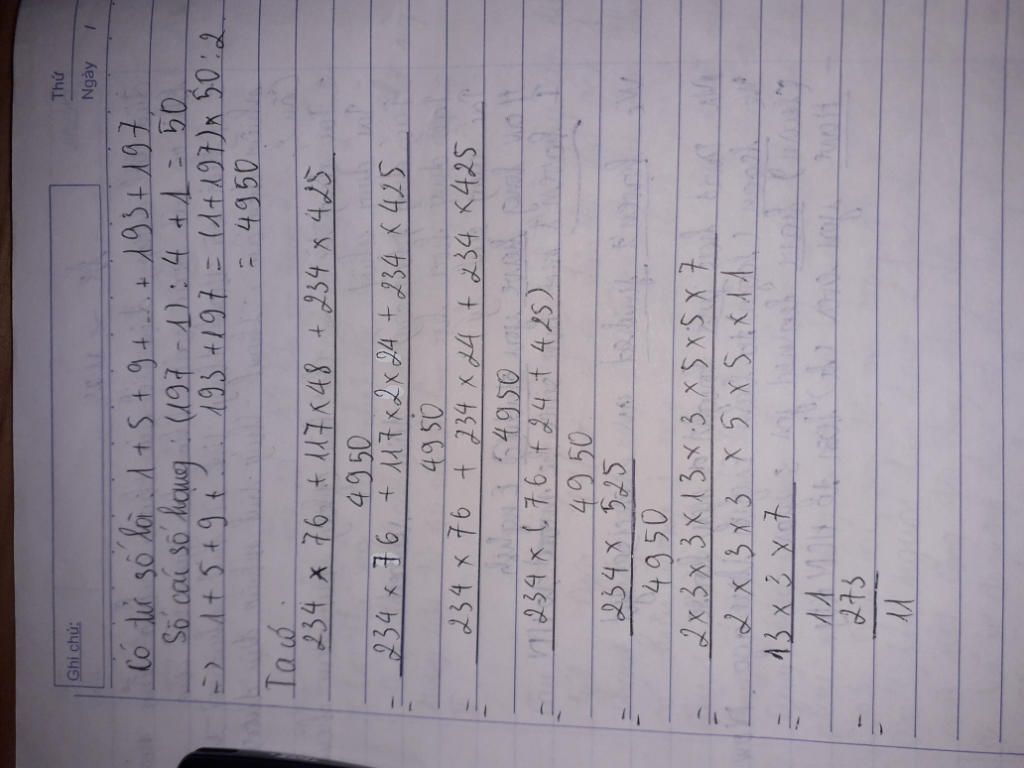 Ghi chú:
Thứ
Ngày /
Có dãy số là: 1 + 5 + 9 + ... + 193 + 197
Số các số hạng: (197 - 1) : 4 + 1 = 50
=> 1 + 5 + 9 + ... 193 + 197 = (1 + 197) x 50 : 2
= 4950
Ta có
234 x 76 + 117 x 48 + 234 x 425
4950
= 234 x 76 + 117 x 2 x 24 + 234 x 425
4950
= 234 x 76 + 234 x 24 + 234 x 425
4950
= 234 x (76 + 24 + 425)
4950
= 234 x 525
4950
= 2 x 3 x 3 x 13 x 3 x 5 x 5 x 7
2 x 3 x 3 x 5 x 5 x 11
= 13 x 3 x 7
11
= 273
11